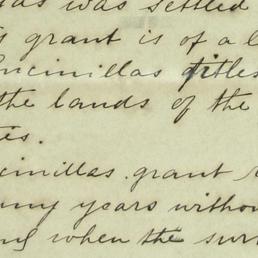 was settled
grant is of a l
ncinillas titles
the lands of the
cinillas. grant
ny years witho
when the sur